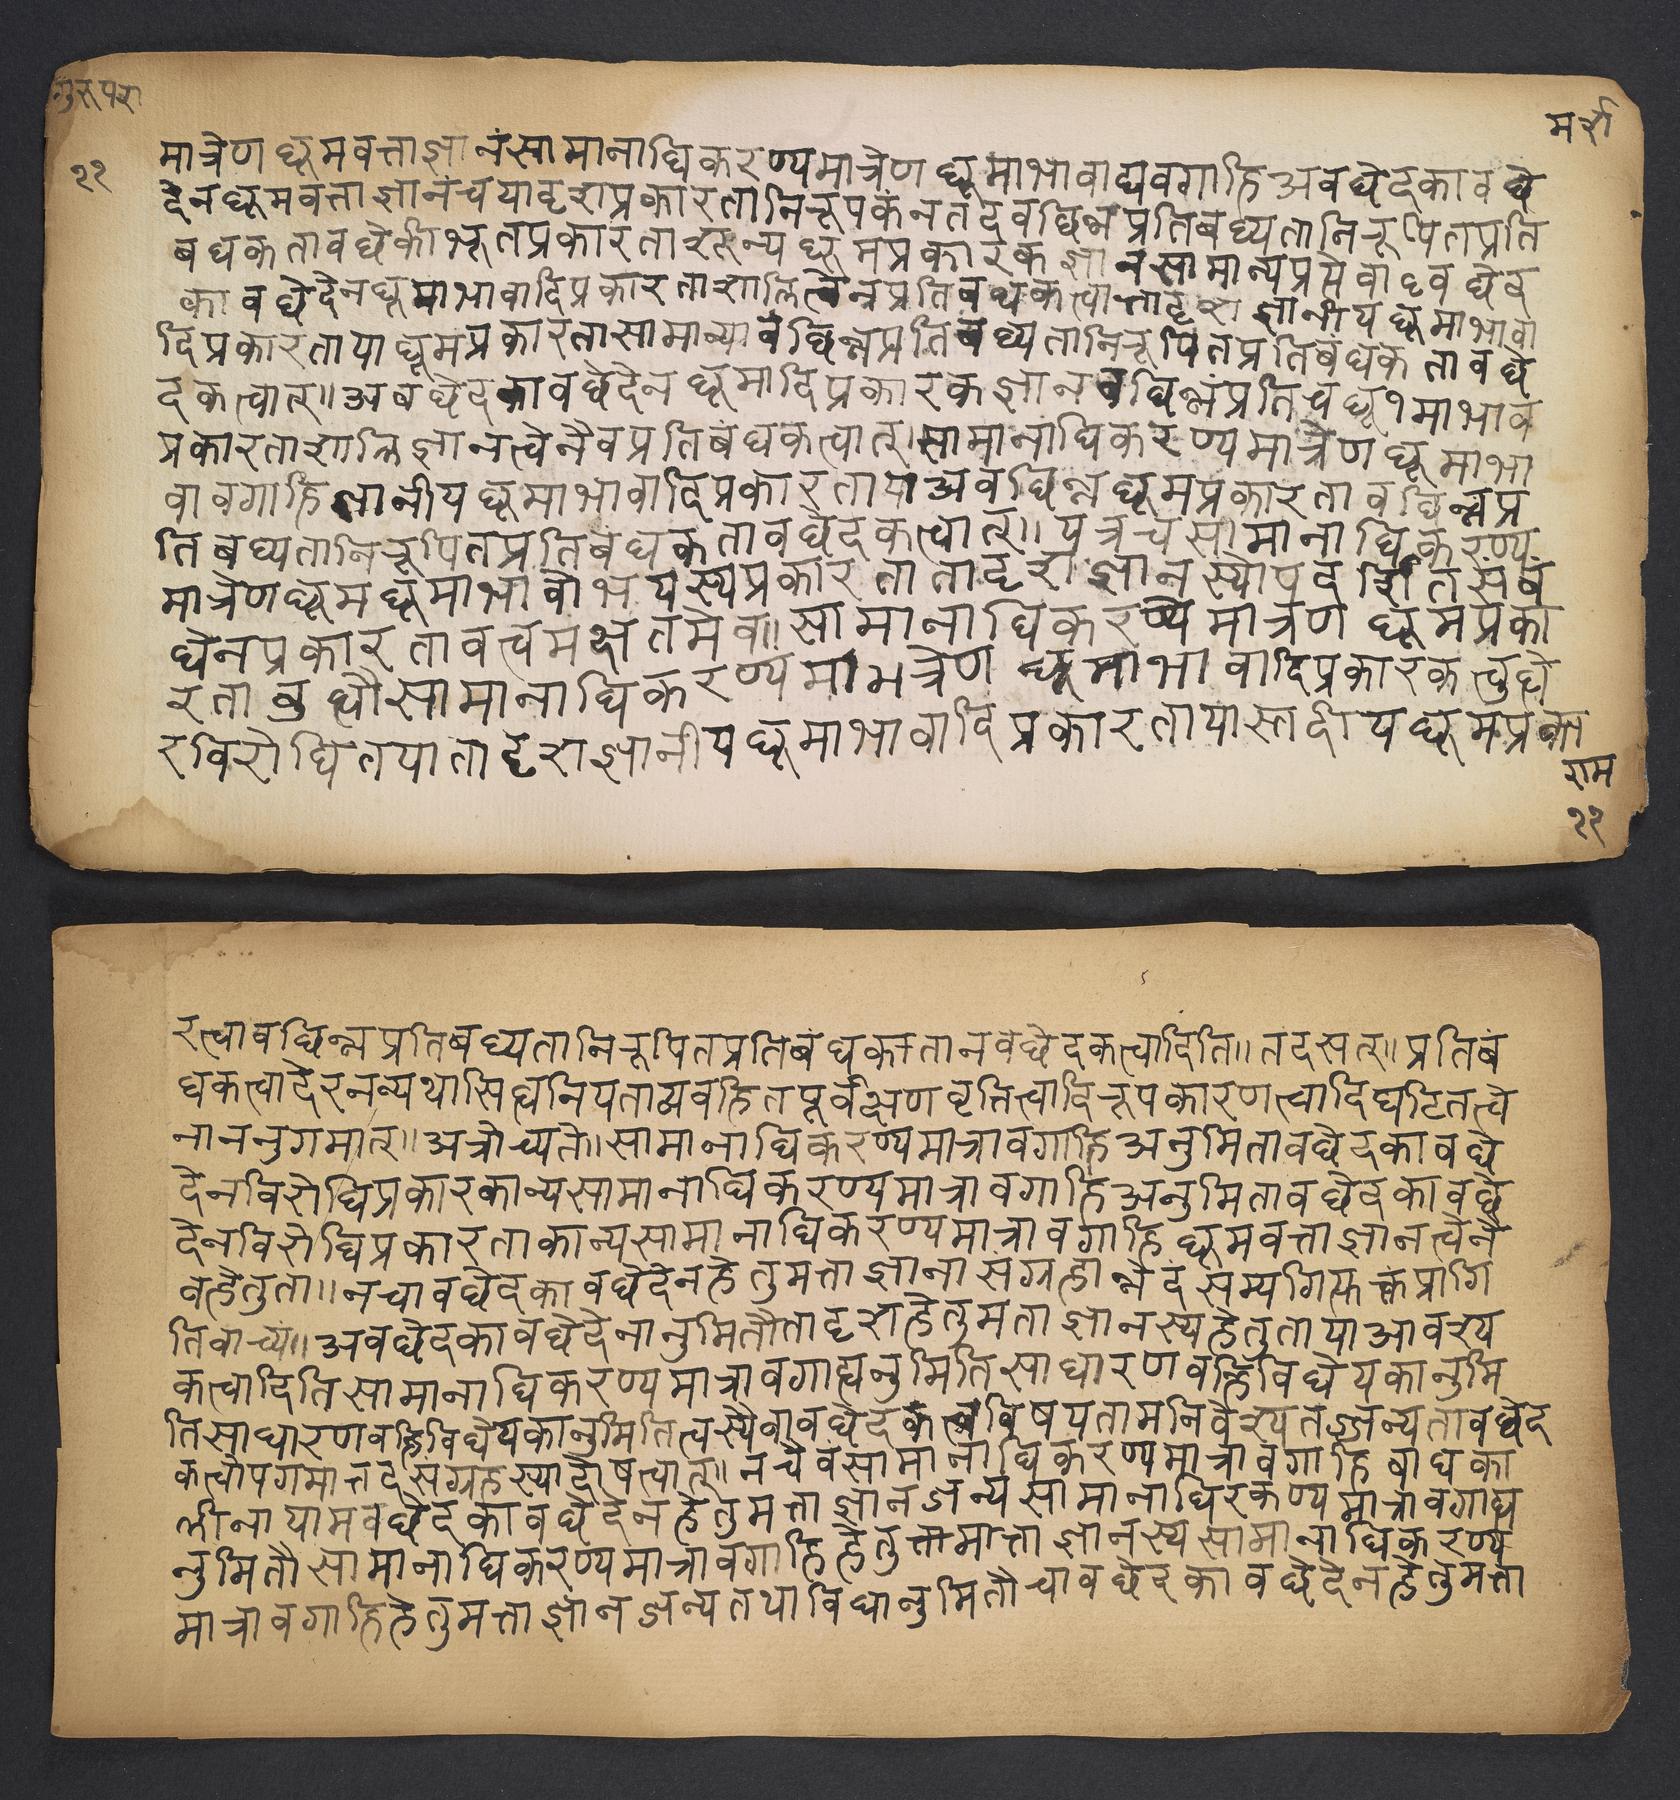 गुरूपरा
मर्रा
२२
मात्रेण धूमवत्ताज्ञानंसामानाधिकरण्यमात्रेण धूमाभावाद्यवगाहि अवछेदकावछे
देनधूमवत्ताज्ञानंचयादृशप्रकारतानिरूपकंनतदेवछिन्नप्रतिबध्यतानिरूपितप्रति
बधकतावछेकीभूतप्रकारताशून्य धूमप्रकारकज्ञानसामान्यप्रत्येवावछेद
कावछेदेनधूमाभावादिप्रकारताशालित्वेनप्रतिबधकत्वात्तादृशज्ञानीयधूमाभावा
दिप्रकारतायाधूमप्रकारतासामान्यावछिन्नप्रतिबध्यतानिरूपितप्रतिबंधकतावछे
दकत्वात्॥अवछेदकावछेदेनधूमादिप्रकारकज्ञानवछिन्नंप्रतिचधू१माभाव
प्रकारताशालिज्ञानत्वेनैवप्रतिबंधकत्वात्।सामानाधिकरण्यमात्रेणधूमाभा
वावगाहिज्ञानीयधूमाभावादिप्रकारताया अवछिन्नधूमप्रकारतावछिन्नप्र
तिबध्यतानिरूपितप्रतिबंधकतावछेदकत्वात्॥यत्रचसामानाधिकरण्य
मात्रेणधूमधूमाभावोभयस्यप्रकारतातादृशज्ञानस्योपदर्शितसंबं
धेनप्रकारतावत्वमक्षतमेव॥सामानाधिकरण्यमात्रेणधूमप्रका
रताबुध्यौसामानाधिकरण्यमामत्रेणधूमाभावादिप्रकारकबुद्धे
रविरोधितयातादृशज्ञानीयधूमाभावादिप्रकारतायास्तदीयधूमप्रका
राम
२२
रत्वावछिन्नप्रतिबध्यतानिरूपितप्रतिबंधकतानवछेदकत्वादिति॥तदसत्॥प्रतिबं
धकत्वादेरनन्यथासिध्यनियताव्यवहितपूर्वक्षणवृत्तित्वादिरूपकारणत्वादिघटितत्वे
नाननुगमात्॥अत्रोच्यते॥सामानाधिकरण्यमात्रावगाहिअनुमितावछेदकावछे
देनविरोधिप्रकारकान्यसामानाधिकरण्यमात्रावगाहिअनुमितावछेदकावछे
देनविरोधिप्रकारताकान्यसामानाधिकरण्यमात्रावगाहिधूमवत्ताज्ञानत्वेनै
वहेतुता॥नचावछेदकावछेदेनहेतुमत्ताज्ञानासंग्रहान्नेदंसम्यगित्युक्तंप्रागि
तिवाच्यं॥अवछेदकावछेदेनानुमितौतादृशहेतुमताज्ञानस्यहेतुतायाआवश्य
कत्वादितिसामानाधिकरण्यमात्रावगाह्यनुमितिसाधारणवह्निविधेयकानुमि
तिसाधारणवह्निविधेयकानुमितित्वस्यैवावछेदकत्वविषयतामनिवेश्यतज्जन्यतावछेद
कत्वोपगमात्तदसंग्रहस्यादोषत्वात्॥नचैवंसामानाधिकरण्यमात्रावगाहिबाधका
लीनायामवछेदकावछेदेनहेतुमत्ताज्ञानजन्यसामानाधिरकण्यमात्रावगाह्य
नुमितौसामानाधिकरण्यमात्रावगाहिहेतुत्तामात्ताज्ञानस्यसामानाधिकरण्य
मात्रावगाहिहेतुमत्ताज्ञानजन्यतथाविधानुमितौचावछेदकावछेदेनहेतुमत्ता